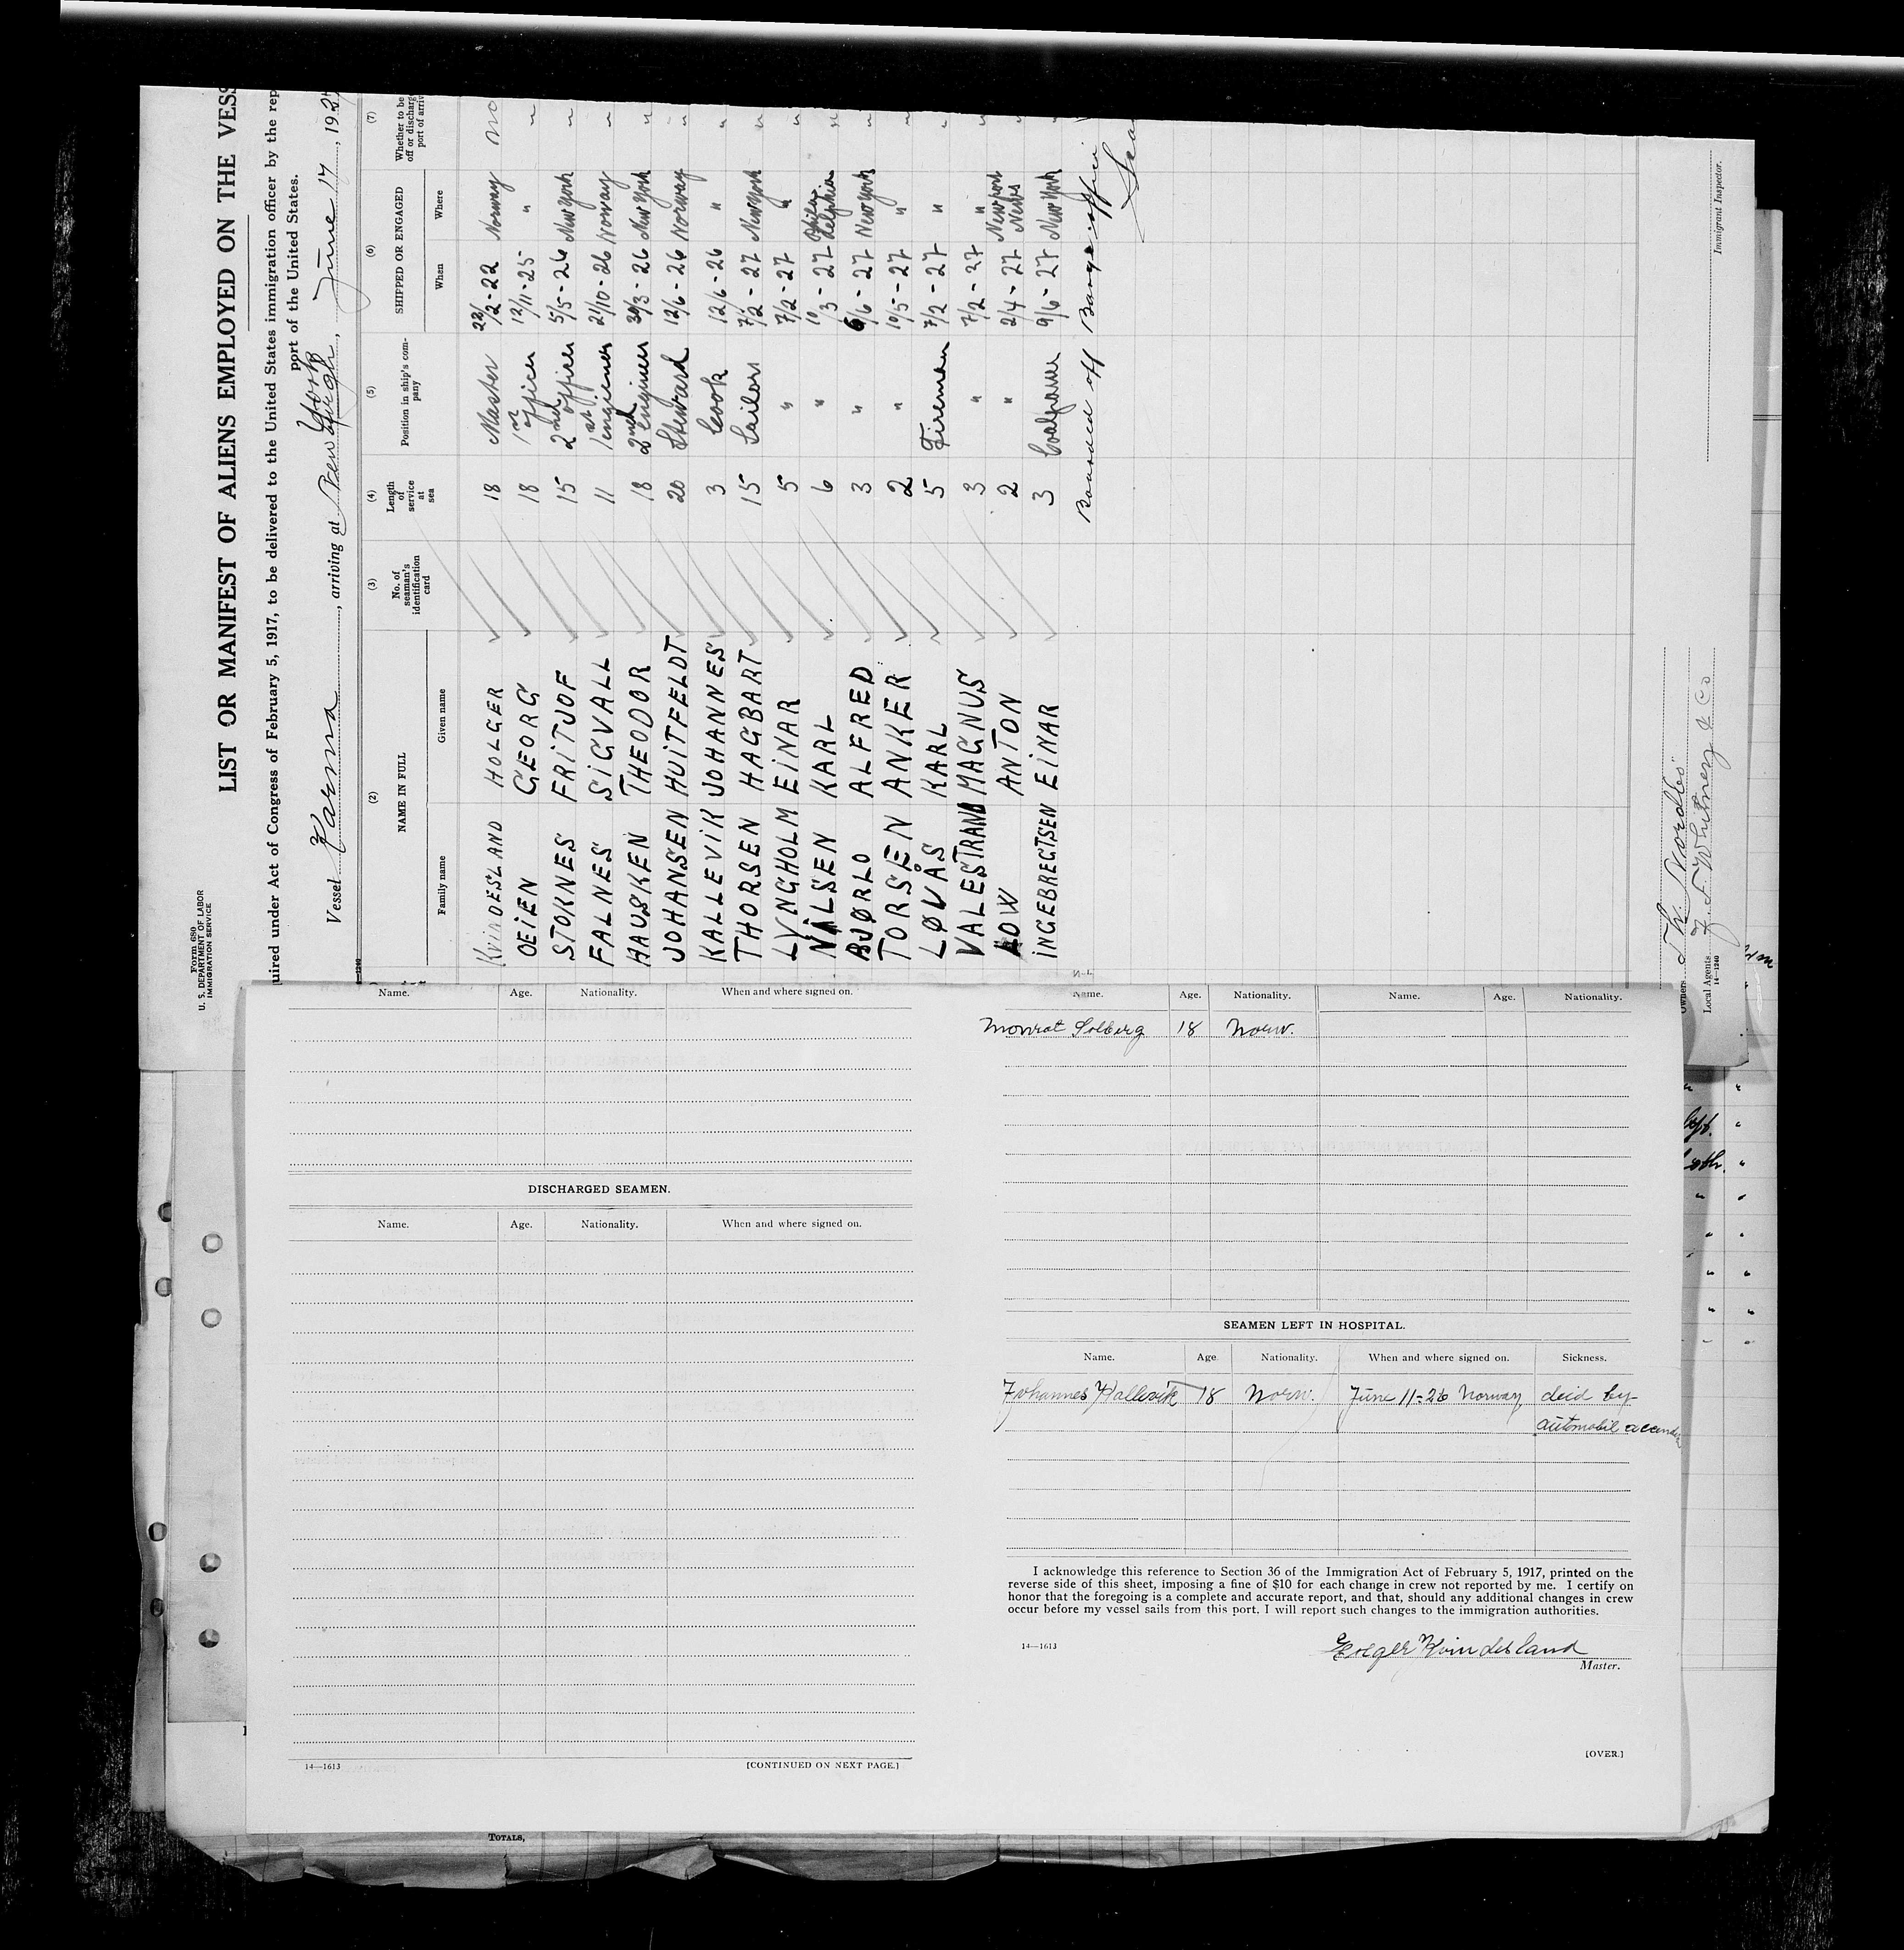 Form 680
U. S. DEPARTMENT OF LABOR
IMMIGRATION SERVICE
LIST OR MANIFEST OF ALIENS EMPLOYED ON THE VESS
uired under Act of Congress of February 5, 1917, to be delivered to the United States immigration officer by the rep
port of the United States.
Vessel Karma, arriving at New York, June 17, 1927
(2) (3) (4) (5) (6) (7)
NAME IN FULL No. of seaman's identification card Length of service at sea Position in ship's company SHIPPED OR ENGAGED Whether to be off or discharg port of arriv
Family name Given name When Where
KvinDESLAND HOLGER 18 Master 22/2-22 Norway no
OEiEN GEORG 18 1st officer 12/11-25 " "
STOKNES FRiTJOF 15 2nd officer 5/5-26 New York "
FALNES SiGVALL 11 1st engineer 21/10-26 Norway "
HAUSKEN THEODOR 18 2nd engineer 30/3-26 New York "
JOHANSEN HUiTFELDT 20 Steward 12/6-26 Norway "
KALLEViK JOHANNES 3 Cook 12/6-26 " "
THORSEN HAGBART 15 Sailors 7/2-27 New York "
LYNGHOLM EiNAR 5 " 7/2-27 " "
NiLSEN KARL 6 " 10/3-27 Philadelphia "
BJØRLO ALFRED 3 " 6/6-27 New York "
TORSEN ANKER 2 " 10/5-27 " "
LØVÅS KARL 5 Fireman 7/2-27 " "
VALESTRAND MAGNUS 3 " 7/2-27 " "
LOW ANTON 2 " 2/4-27 Newport News "
iNGEBREGTSEN EiNAR 3 Coalpasser 9/6-27 New York "
Boarded off Barge office
Owners
Local Agents J. F. Whitney & Co
14—1240
Immigrant Inspector.
Name. Age. Nationality. When and where signed on.
DISCHARGED SEAMEN.
Name. Age. Nationality. When and where signed on.
14—1613 [CONTINUED ON NEXT PAGE.]
Name. Age. Nationality. Name. Age. Nationality.
Monrat Solberg 18 Norw.
SEAMEN LEFT IN HOSPITAL.
Name. Age Nationality. When and where signed on. Sickness.
Johannes Kallevik 18 Norw. June 11-26 Norway deid by
automobil
I acknowledge this reference to Section 36 of the Immigration Act of February 5, 1917, printed on the
reverse side of this sheet, imposing a fine of $10 for each change in crew not reported by me. I certify on
honor that the foregoing is a complete and accurate report, and that, should any additional changes in crew
occur before my vessel sails from this port, I will report such changes to the immigration authorities.
14—1613
Holger Kvindesland
Master.
[OVER.]
TOTALS,